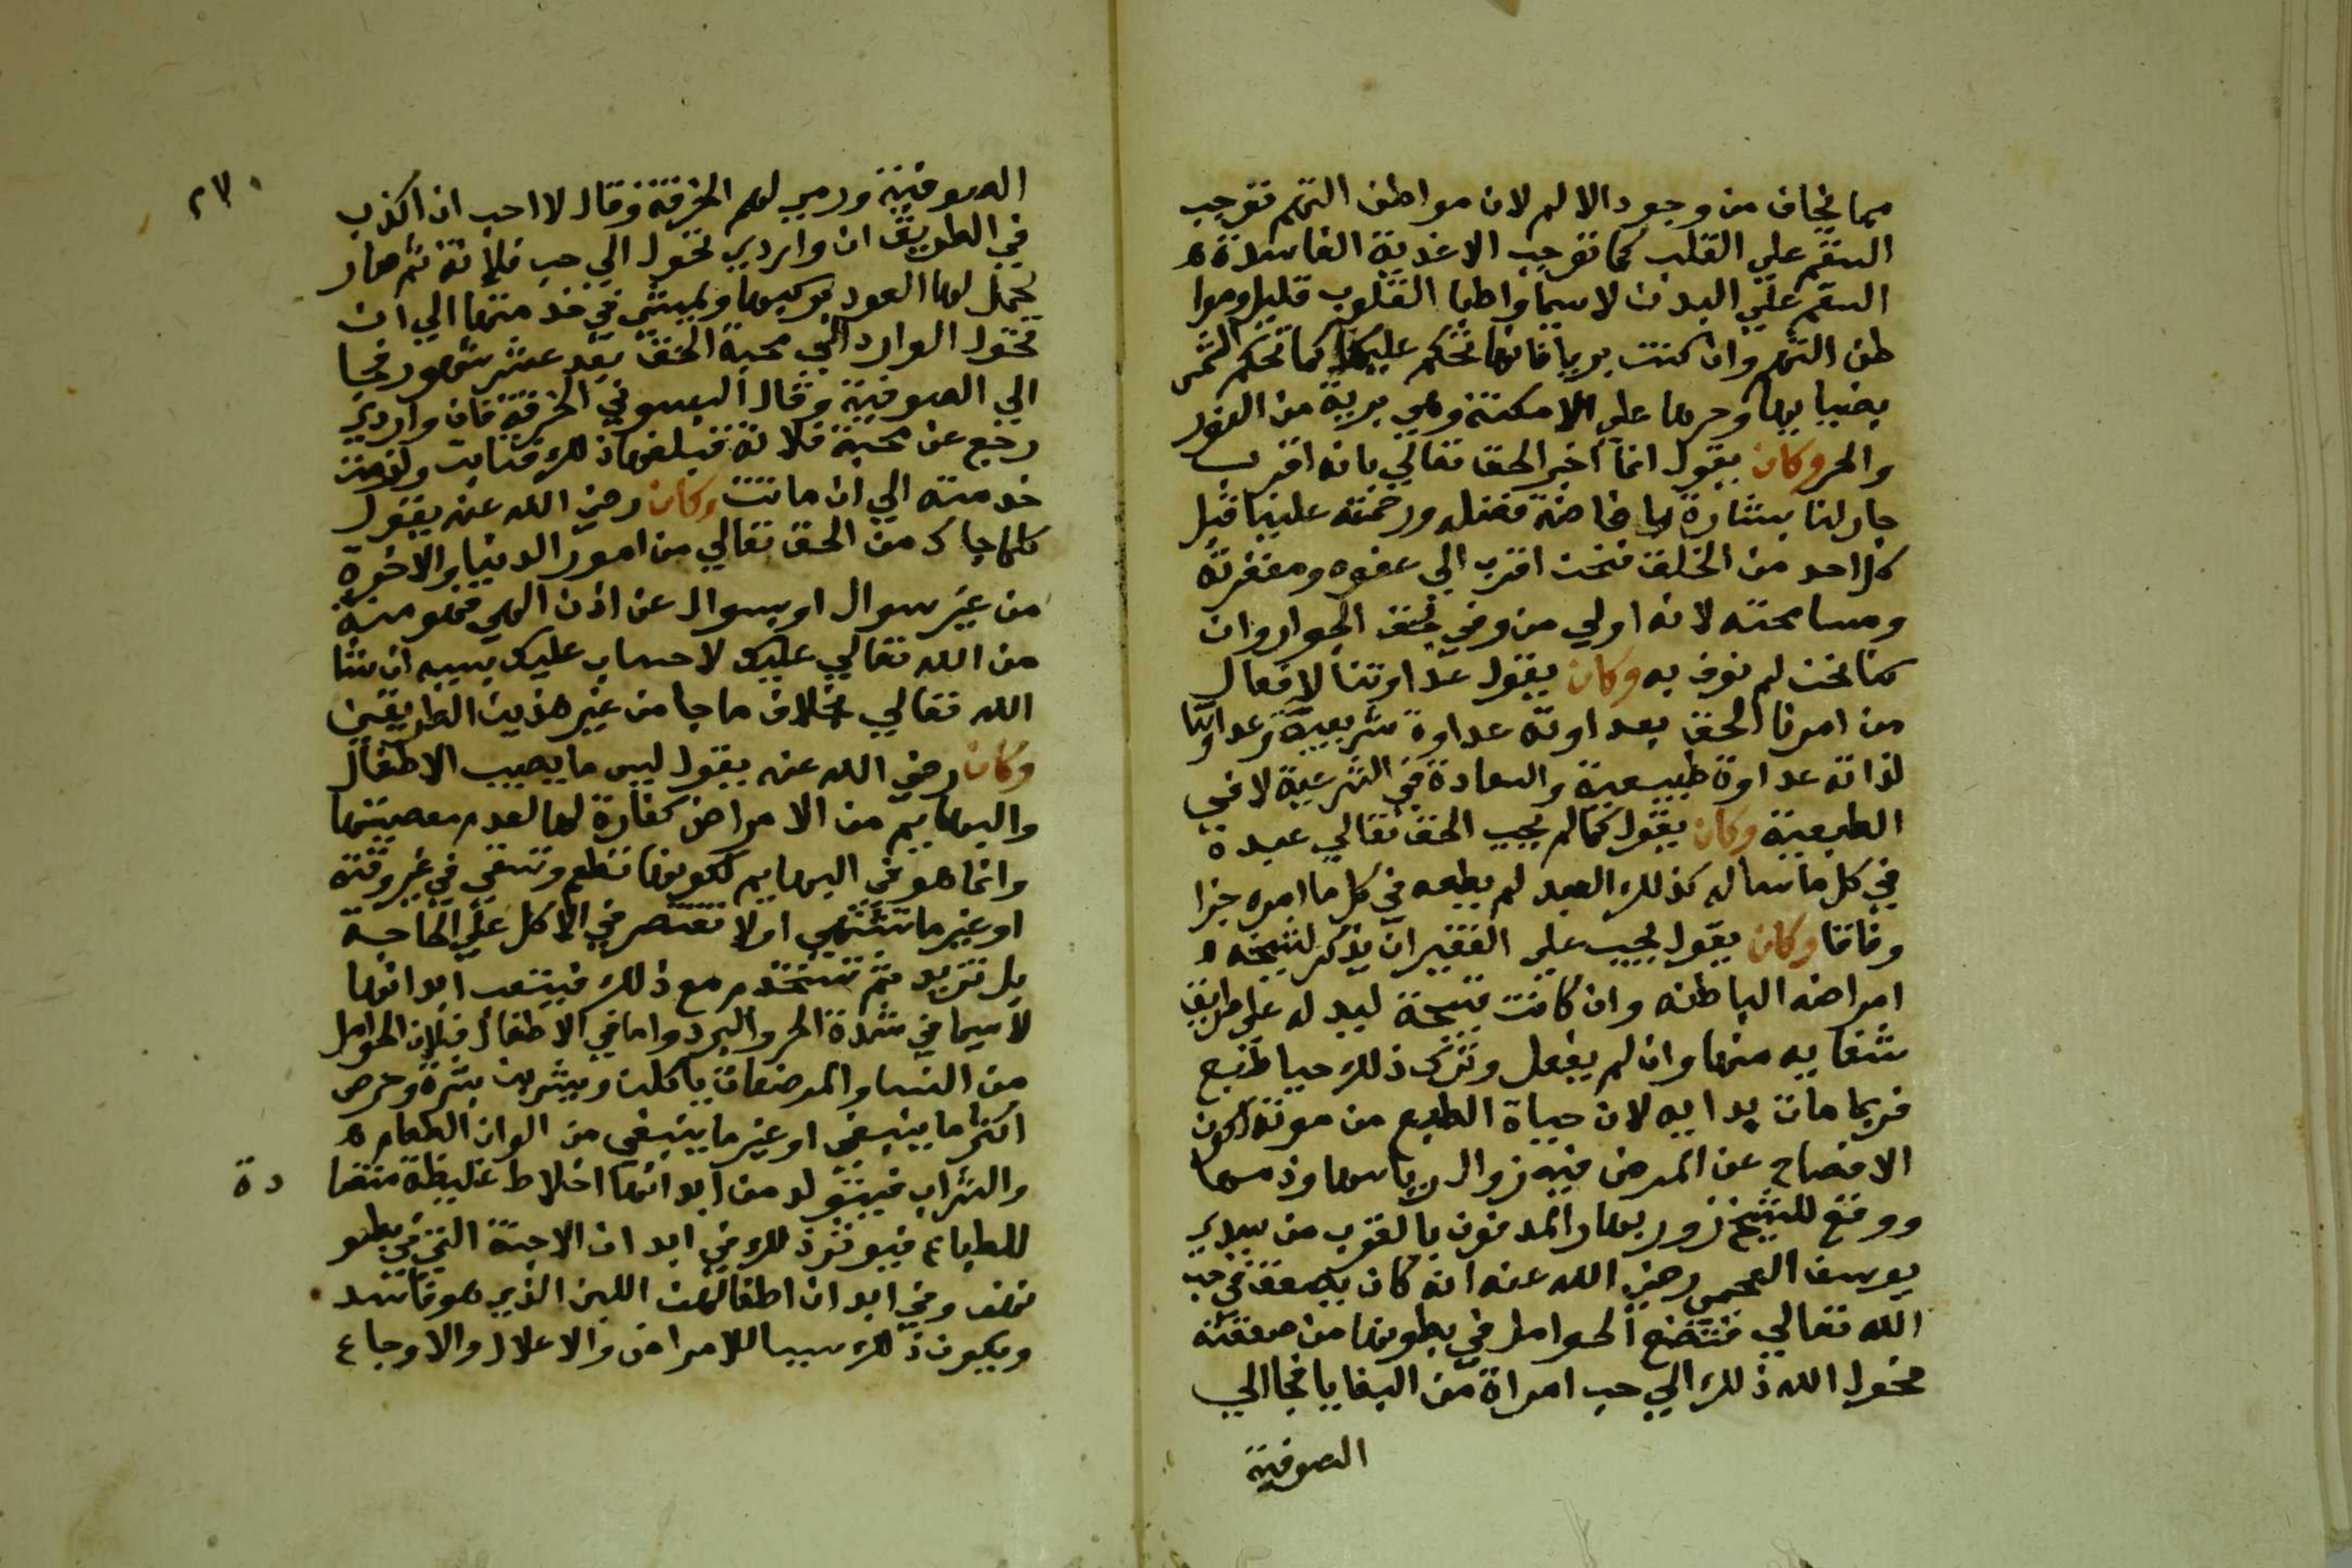 مما يخاف من وجود الالم لان مواطن التهم توجب
السقم على القلب كما توجب الاغذية الفاسدة
السقم على البدن لا سيما واطبا القلوب قليل وموا
طن التهم وان كنت بريا فانها تحكم عليك كما تحكم الشمس
بضيايها وحرها على الامكنة وهي برية من النور
والحر وكان يقول انما اخبر الحق تعالي بانه اقرب
جار لنا بشارة لنا بافاضة فضله ورحمته علينا قبل
كل احد من الخلق فنحن اقرب الي عفوه ومغفرته
ومسامحته لانه اولي من وفي بحق الجوار وان
كنا نحن لم نوف به وكان يقول عداوتنا لافعال
من امرنا الحق بعداوته عداوة شرعية وعداوتنا
لذاته عداوة طبيعية والسعادة في الشرعية لا في
الطبيعية وكان يقول كما لم يجب الحق تعالي عبده
في كل ما ساله كذلك العبد لم يطعه في كل ما امره جزا
وفاقا وكان يقول يجب على الفقير ان يذكر لشيخه
امراضه الباطنه وان كانت قبيحة ليدله على طريق
شفايه منها وان لم يفعل وترك ذلك حيا طبع
فربما مات بدايه لان حياة الطبع من موته لكون
الافصاح عن المرض فيه زوال رياسها وذمها
ووقع للشيخ زوربهار المدفون بالقرب من سيدي
يوسف العجمي رضي الله عنه انه كان يصعق في حب
الله تعالي فتضع الحوامل في بطونها من صعقته
فحول الله ذلك الي حب امراة من البغايا فجا الي
الصوفية
٢٧٠
الصوفية ورمي لهم الخرقة وقال لا احب ان اكذب
في الطريق ان واردي تحول الي حب فلانة ثم صار
يحمل لها العود بركبها ويمشي في خدمتها الي ان
تحول الوارد الي محبة الحق بعد عشر شهور فجا
الي الصوفية وقال البسوني الخرقة فان واردي
رجع عن محبة فلانة فبلغها ذلك فتابت ولزمت
خدمته الي ان ماتت وكان رضي الله عنه يقول
كلما جاك من الحق تعالي من امور الدنيا والاخرة
من غير سوال او بسوال عن اذن الهي فهو منة
من الله تعالي عليك لا حساب عليك بسببه ان شا
الله تعالي بخلاف ما جا من غير هذين الطريقين
وكان رضي الله عنه يقول ليس ما يصيب الاطفال
والبهايم من الامراض كفارة لها لعدم معصيتها
وانما هو في البهايم لكونها تطعم وتسقي في غير وقته
او غير ما تشتهي او لا تقتصر في الاكل علي الحاجة
بل تزيد ثم تستخدم مع ذلك فيتعب ابدانها
لا سيما في شدة الحر والبرد واما في الاطفال فلان الحوامل
من النسا والمرضعات ياكلن ويشربن بشره وحرص
اكثر ما ينبغي او غير ما ينبغي من الوان الطعام
والشراب فيتولد من ابدانها اخلاط غليظة متضا
دة
للطباع فيوثر ذلك في ابدان الاجنة التي في بطو
نهن وفي ابدان اطفالهن اللبن الذي هو فاسد
ويكون ذلك سببا للامراض والاعلال والاوجاع